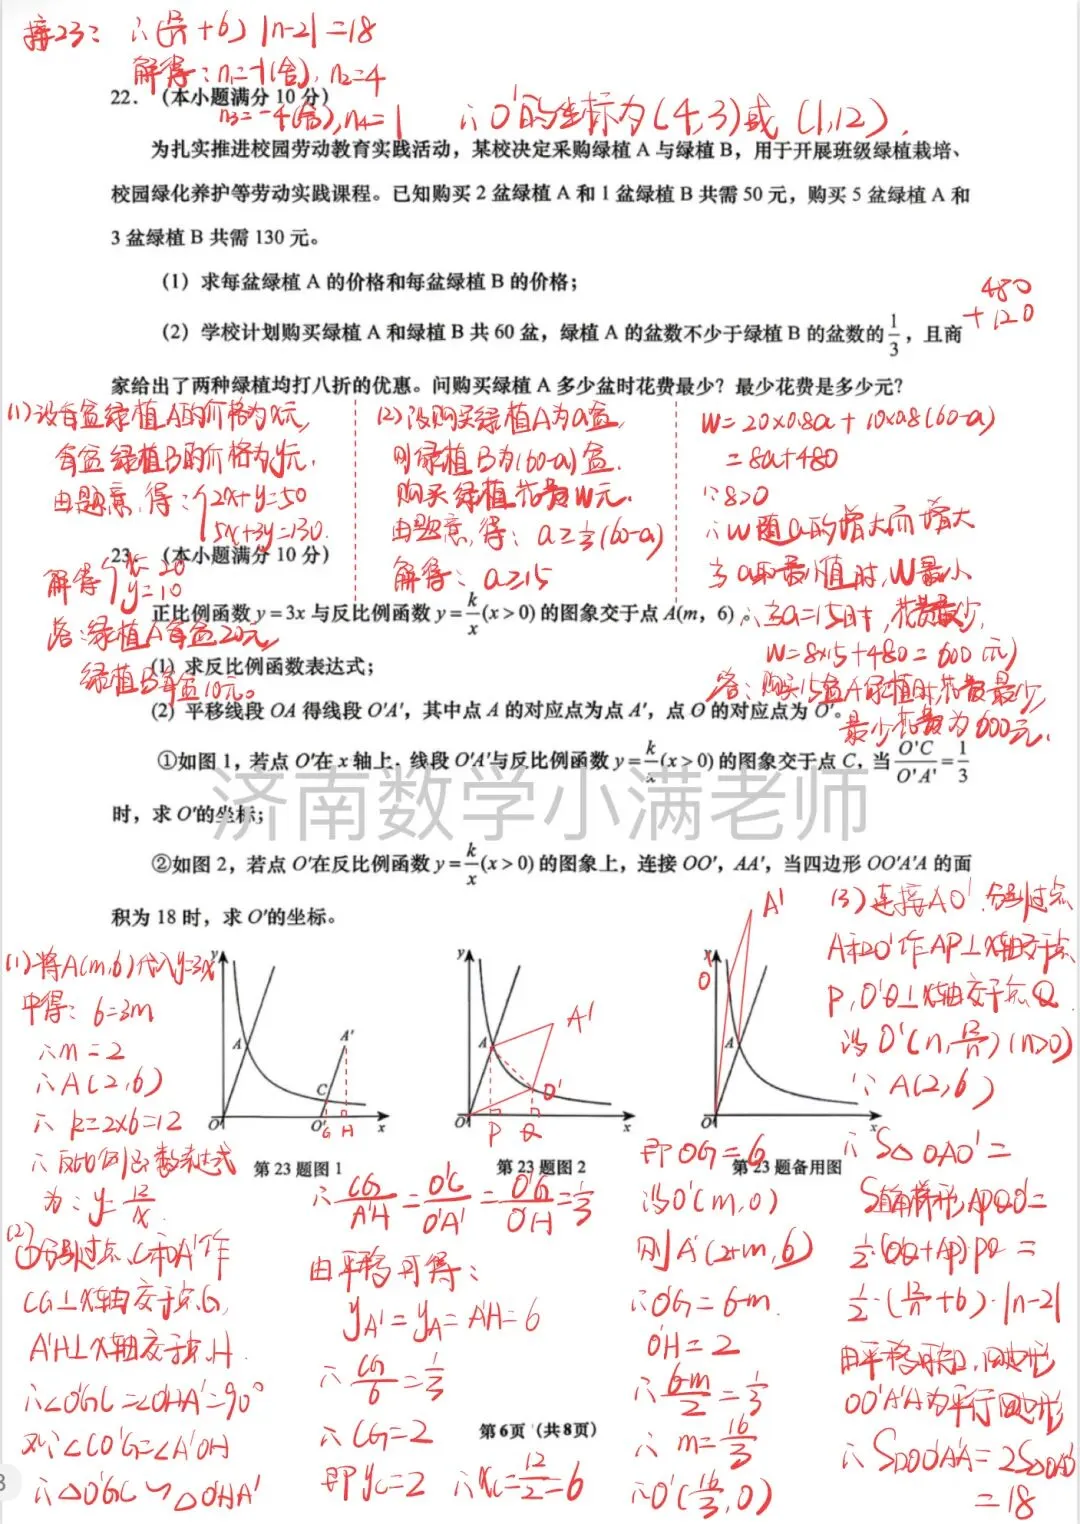 接23: ∴(12/n+6)|n-2|=18
解得:n₁=-1(舍),n₂=4
n₃=-4(舍),n₄=1 ∴O'的坐标为(4,3)或(1,12).
22. (本小题满分 10 分)
为扎实推进校园劳动教育实践活动，某校决定采购绿植 A 与绿植 B，用于开展班级绿植栽培、
校园绿化养护等劳动实践课程。已知购买 2 盆绿植 A 和 1 盆绿植 B 共需 50 元，购买 5 盆绿植 A 和
3 盆绿植 B 共需 130 元。
(1) 求每盆绿植 A 的价格和每盆绿植 B 的价格；
(2) 学校计划购买绿植 A 和绿植 B 共 60 盆，绿植 A 的盆数不少于绿植 B 的盆数的1/3，且商
家给出了两种绿植均打八折的优惠。问购买绿植 A 多少盆时花费最少？最少花费是多少元？
480
+120
(1)设每盆绿植A的价格为x元,
每盆绿植B的价格为y元.
由题意,得:{2x+y=50
5x+3y=130.
解得{x=20
y=10
答:绿植A每盆20元,
绿植B每盆10元。
(2)设购买绿植A为a盆,
则绿植B为(60-a)盆.
购买绿植花费W元.
由题意,得:a≥1/3(60-a)
解得:a≥15
W=20×0.8a+10×0.8(60-a)
=8a+480
∵8>0
∴W随a的增大而增大
当a取最小值时,W最小
∴当a=15时,花费最少,
W=8×15+480=600(元)
答:购买15盆A绿植时花费最少,
最少花费为600元.
23. (本小题满分 10 分)
正比例函数 y=3x 与反比例函数 y=k/x(x>0) 的图象交于点 A(m，6)。
(1) 求反比例函数表达式；
(2) 平移线段 OA 得线段 O'A'，其中点 A 的对应点为点 A'，点 O 的对应点为 O'。
①如图 1，若点 O'在 x 轴上，线段 O'A'与反比例函数 y=k/x(x>0) 的图象交于点 C，当O'C/O'A'=1/3
时，求 O'的坐标；
济南数学小满老师
②如图 2，若点 O'在反比例函数 y=k/x(x>0) 的图象上，连接 OO'，AA'，当四边形 OO'A'A 的面
积为 18 时，求 O'的坐标。
y A A' C O O' G H x
第 23 题图 1
y A A' O' O P Q x
第 23 题图 2
A' y O' A O x
第 23 题备用图
(1)将A(m,6)代入y=3x
中得:6=3m
∴m=2
∴A(2,6)
∴k=2×6=12
∴反比例函数表达式
为:y=12/x
(2)
①分别过点C和A'作
CG⊥x轴交于点G,
A'H⊥x轴交于点H
∴∠O'GC=∠O'HA'=90°
又∵∠CO'G=∠A'O'H
∴△O'GC∽△O'HA'
∴CG/A'H=O'C/O'A'=O'G/O'H=1/3
由平移可得:
yA'=yA=A'H=6
∴CG/6=1/3
∴CG=2
即yC=2 ∴xC=12/2=6
即OG=6
设O'(m,0)
则A'(2+m,6)
∴O'G=6-m
O'H=2
∴6-m/2=1/3
∴m=16/3
∴O'(16/3,0)
(3)连接AO',分别过点
A和O'作AP⊥x轴交于点
P,O'Q⊥x轴交于点Q
设O'(n,12/n)(n>0)
∵A(2,6)
∴S△OAO'=
S直角梯形APQO'=
1/2·(O'Q+AP)·PQ=
1/2·(12/n+6)·|n-2|
由平移可知,四边形
OO'A'A为平行四边形
∴S▱OO'A'A=2S△OAO'
=18
第6页（共8页）